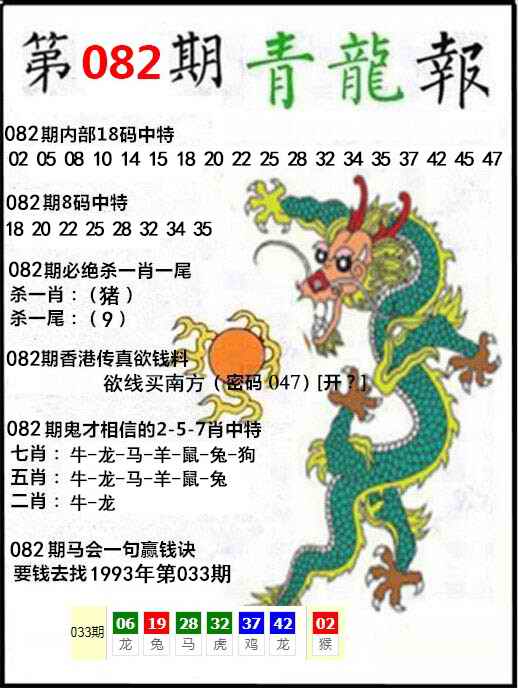 第082期青龍報
082期内部18码中特
02 05 08 10 14 15 18 20 22 25 28 32 34 35 37 42 45 47
082期8码中特
18 20 22 25 28 32 34 35
082期必绝杀一肖一尾
杀一肖：（猪）
杀一尾：（9）
082期香港传真欲钱料
欲线买南方（密码 047）[开？]
082期鬼才相信的2-5-7肖中特
七肖：牛-龙-马-羊-鼠-兔-狗
五肖：牛-龙-马-羊-鼠-兔
二肖：牛-龙
082期马会一句赢钱诀
要钱去找1993年第033期
033期 06 19 28 32 37 42 02
龙 兔 马 虎 鸡 龙 猴